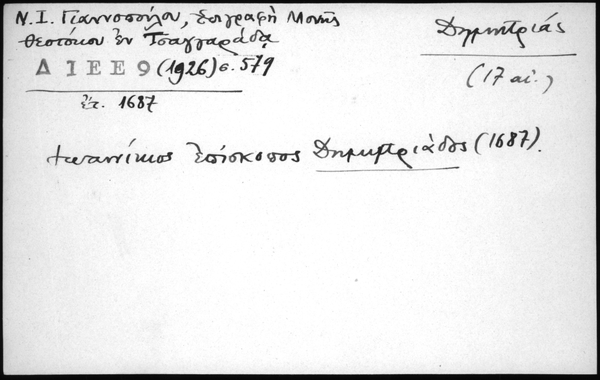 Ν. Ι. Γιαννοπούλου, ἐπιγραφὴ Μονῆς
Θεοτόκου ἐν Τσαγγαράδᾳ
Δ Ι Ε Ε 9 (1926) σ. 579
ἔτ. 1687
Δημητριάς
(17 αἰ.)
Ἰωαννίκιος ἐπίσκοπος Δημητριάδος (1687).